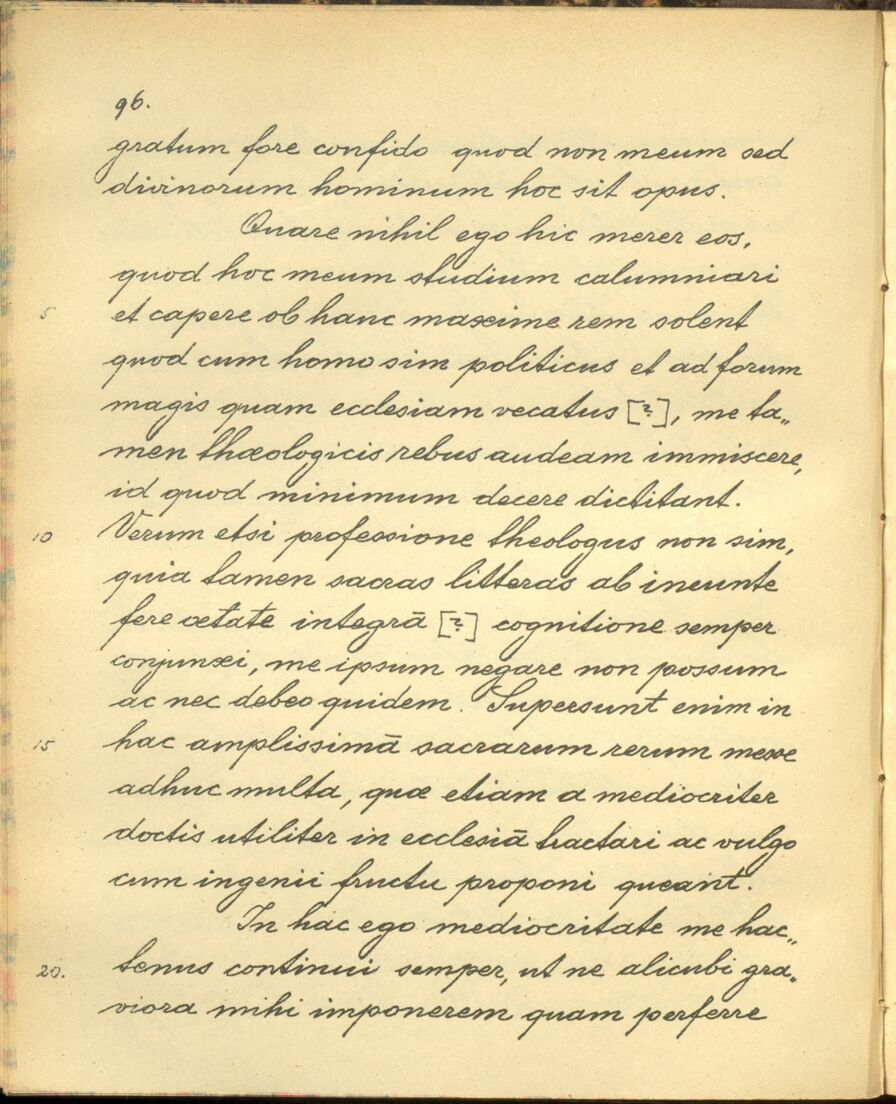 96.
gratum fore confido quod non meum sed
divinorum hominum hoc sit opus.
Quare nihil ego hic merer eos,
quod hoc meum studium calumniari
5 et capere ob hanc maxime rem solent
quod cum homo sim politicus et ad forum
magis quam ecclesiam vecatus [?], me ta„
men thæologicis rebus audeam immiscere,
id quod minimum decere dictitant.
10 Verum etsi professione theologus non sim,
quia tamen sacras litteras ab ineunte
fere ætate integrā [?] cognitione semper
conjunxi, me ipsum negare non possum
ac nec debeo quidem. Supersunt enim in
15 hac amplissimā sacrarum rerum
adhuc multa, quæ etiam a mediocriter
doctis utiliter in ecclesiā tractari ac vulgo
cum ingenii fructu proponi queant.
In hac ego mediocritate me hac„
20. tenus continui semper, ut ne alicubi gra„
viora mihi imponerem quam perferre